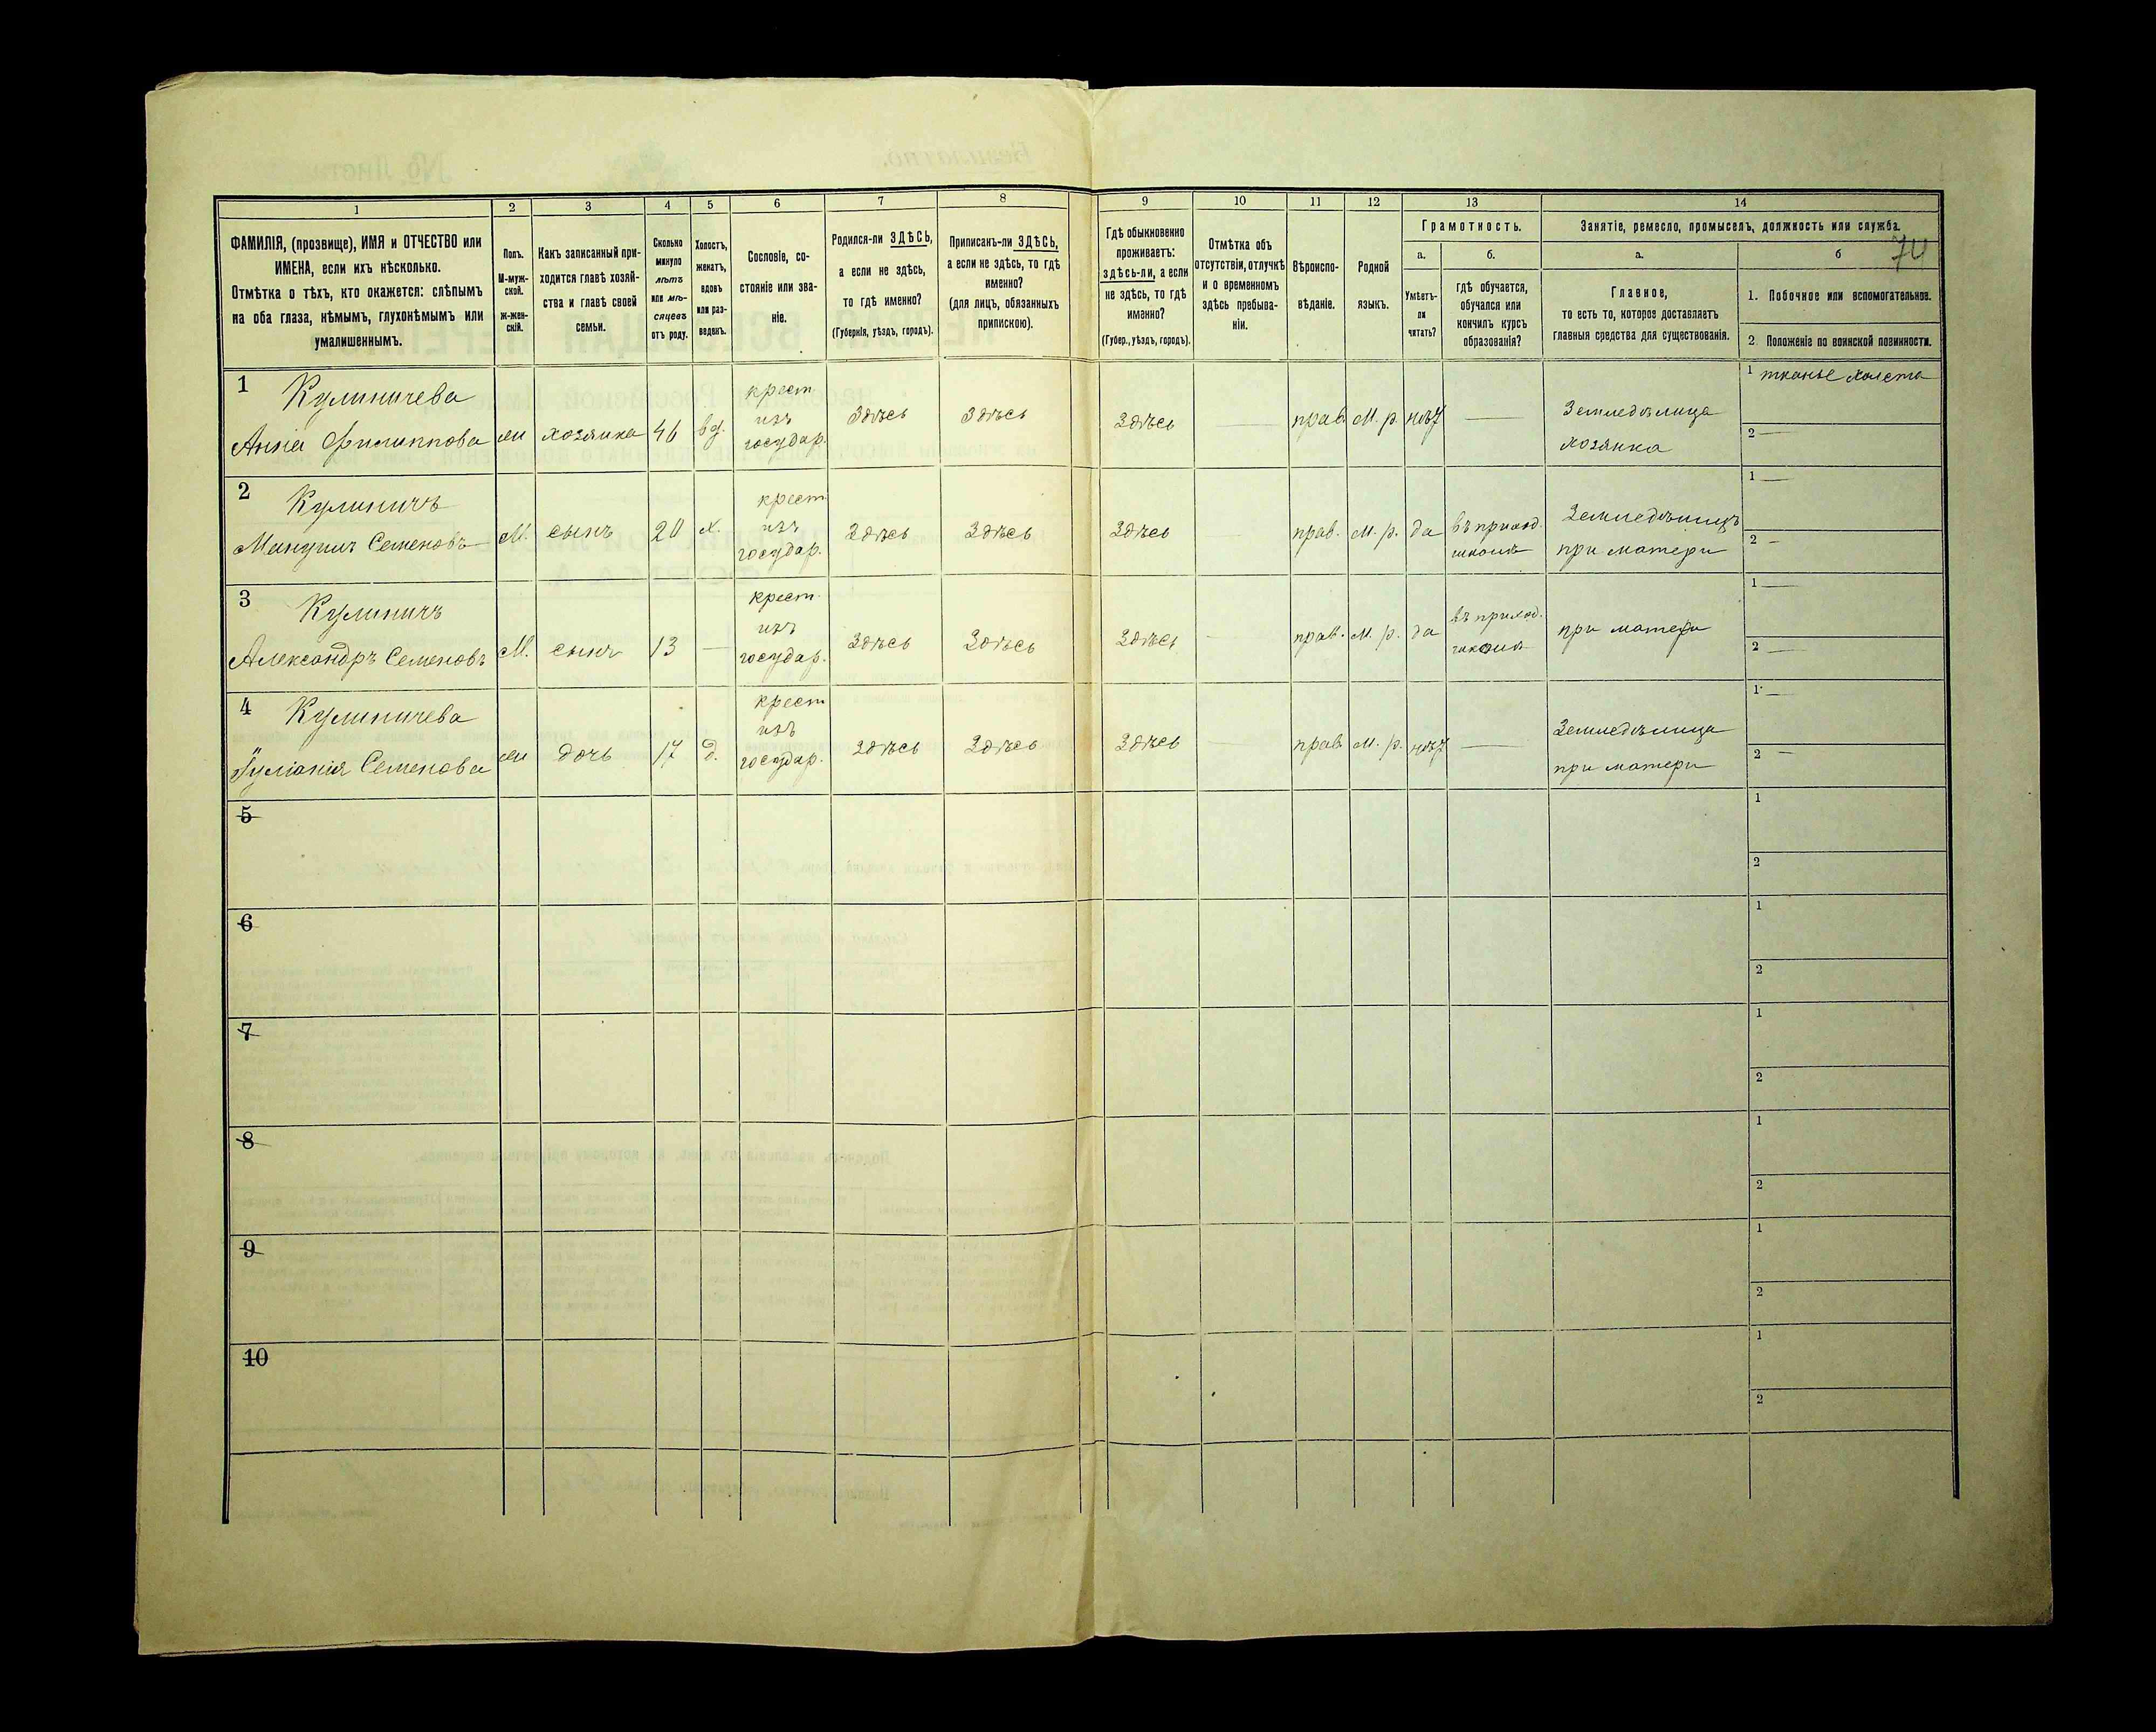 74
1
2
3
4
5
6
7
8
9
10
11
12
13
14
ФАМИЛІЯ, (прозвище), ИМЯ и ОТЧЕСТВО или
ИМЕНА, если ихъ нѣсколько.
Отмѣтка о тѣхъ, кто окажется: слѣпымъ
на оба глаза, нѣмымъ, глухонѣмымъ или
умалишеннымъ.
Полъ.
М-муж-
ской.
ж-жен-
скій.
Какъ записанный при-
ходится главѣ хозяй-
ства и главѣ своей
семьи.
Сколько
минуло
лѣтъ
или мѣ-
сяцевъ
отъ роду.
Холостъ,
женатъ,
вдовъ
или раз-
веденъ.
Сословіе, со-
стояніе или зва-
ніе.
Родился-ли ЗДѢСЬ,
а если не здѣсь,
то гдѣ именно?
(Губернія, уѣздъ, городъ).
Приписанъ-ли ЗДѢСЬ,
а если не здѣсь, то гдѣ
именно?
(для лицъ, обязанныхъ
припискою).
Гдѣ обыкновенно
проживаетъ:
здѣсь-ли, а если
не здѣсь, то гдѣ
именно?
(Губер., уѣздъ, городъ).
Отмѣтка объ
отсутствіи, отлучкѣ
и о временномъ
здѣсь пребыва-
ніи.
Вѣроиспо-
вѣданіе.
Родной
языкъ.
Грамотность.
а.
Умѣетъ-
ли
читать?
б.
гдѣ обучается,
обучался или
кончилъ курсъ
образованія?
Занятіе, ремесло, промыселъ, должность или служба.
а.
Главное,
то есть то, которое доставляетъ
главныя средства для существованія.
б
1. Побочное или вспомогательное.
2 Положеніе по воинской повинности.
1 Кулиничева
Анна Филиппова
хозяика 46 вд.
крест
изъ
государ.
Здѣсь Здѣсь Здѣсь — прав. М. р. нѣт —
Земледѣлица
хозяика
1 тканье холста
2 —
2 Кулиничъ
Семеновъ М. сынъ 20 х.
крест
изъ
государ.
Здѣсь Здѣсь Здѣсь — прав. м. р. да
въ приход.
школѣ
Земледѣлецъ
при матери
1 —
2 —
3 Кулиничъ
Александръ Семеновъ М. сынъ 13 —
крест.
изъ
государ.
Здѣсь Здѣсь Здѣсь — прав. м. р. да
въ приход.
школѣ
при матери
1 —
2 —
4 Кулиничева
Іуліанія Семенова
дочь 17 д.
крест
изъ
государ.
Здѣсь Здѣсь Здѣсь — прав. м. р. нѣт —
Земледѣлица
при матери
1 —
2 —
5
1
2
6
1
2
7
1
2
8
1
2
9
1
2
10
1
2